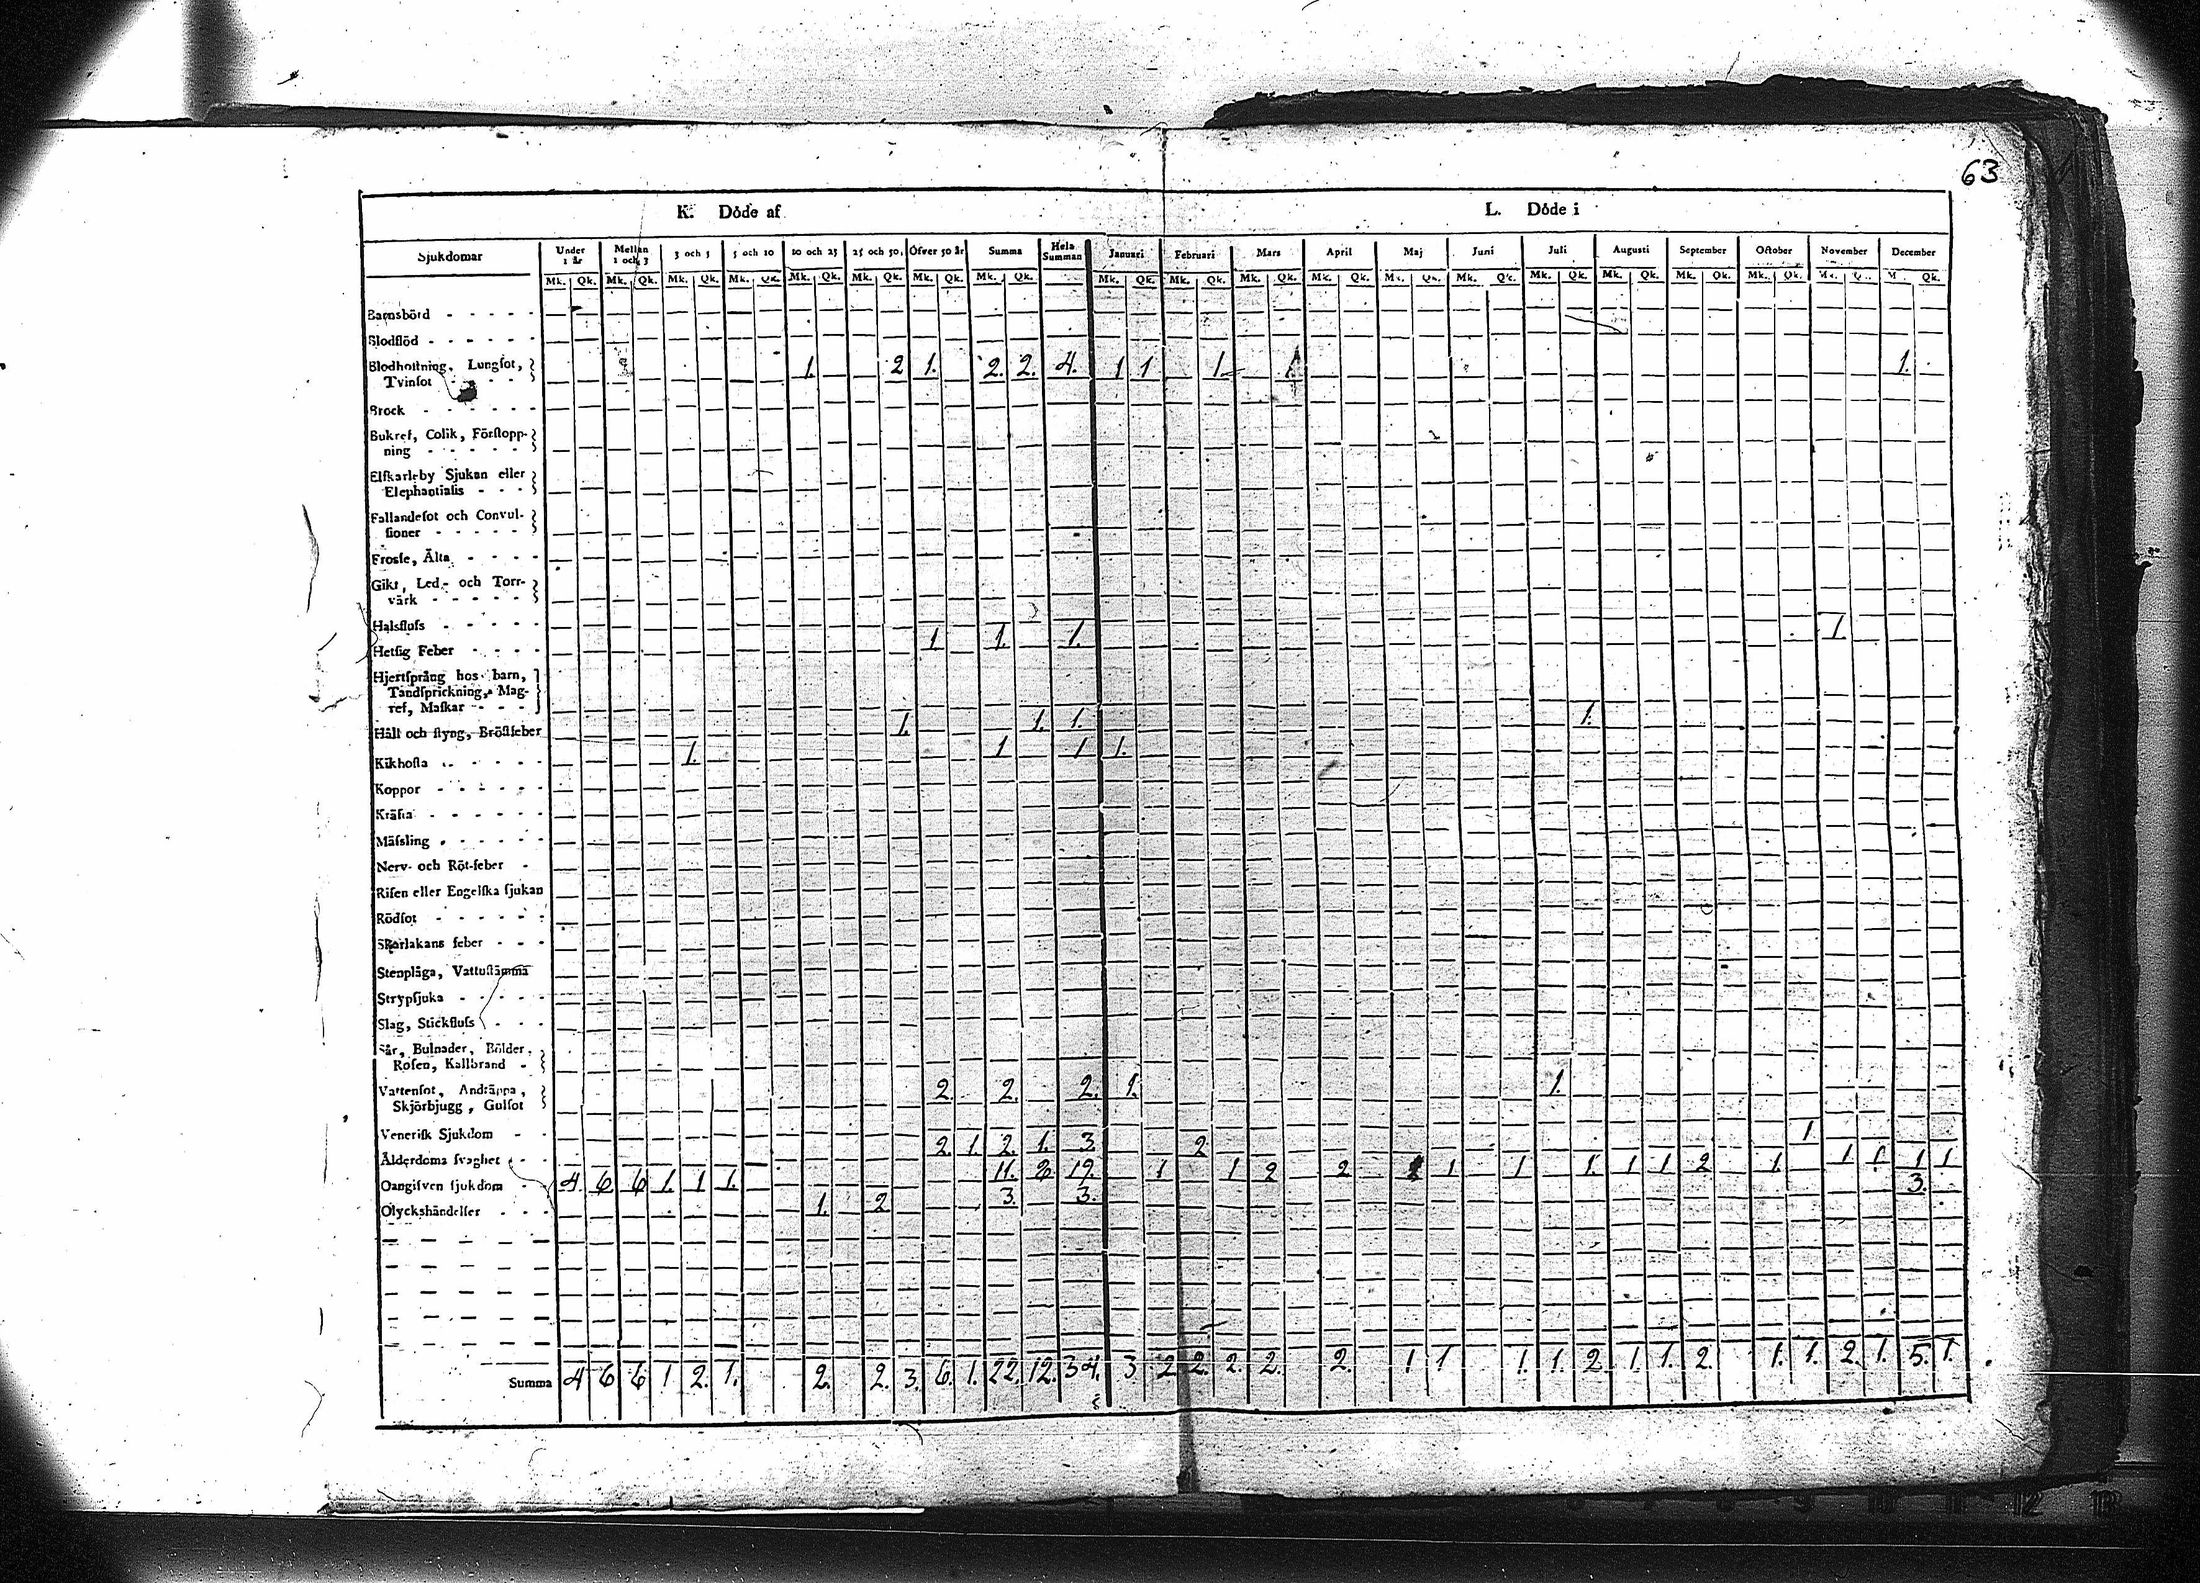 63
K. Döde af L. Döde i
Sjukdomar Under 1 år Mellan 1 och 3 3 och 5 5 och 10 10 och 25 25 och 50. Öfver 50 år Summa Hela Summan Januari Februari Mars April Maj Juni Juli Augusti September October November December
Mk. Qk. Mk. Qk. Mk. Qk. Mk. Qk. Mk. Qk. Mk. Qk. Mk. Qk. Mk. Qk. Mk. Qk. Mk. Qk. Mk. Qk. Mk. Qk. Mk. Qk. Mk. Qk. Mk. Qk. Mk. Qk. Mk. Qk. Mk. Qk. Qk.
Barnsbörd - - - - -
Blodflöd - - - - - -
Blodhoſtning, Lungſot, 1. 2 1. 2. 2. 4. 1 1 1. 1. 1.
Tvinſot - - - -
Brock - - - - - -
Bukref, Colik, Förſtopp-
ning - - - - - -
Elfkarleby Sjukan eller
Elephantiaſis - - -
Fallandeſot och Convul-
ſioner - - - - -
Froſſe, Älta - - - -
Gikt, Led- och Torr-
värk - - - - -
Halsfluſs - - - - - 1 1. 1. 1.
Hetſig Feber - - - -
Hjertſprång hos barn,
Tandſprickning, Mag-
ref, Maſkar - - - 1. 1. 1. 1.
Håll och ſtyng, Bröſtfeber
Kikhoſta - - - - - 1. 1 1 1.
Koppor - - - - - -
Kräfta - - - - - -
Mäſsling - - - - - -
Nerv- och Röt-feber -
Riſen eller Engelſka ſjukan
Rödſot - - - - - -
Skarlakans feber - - -
Stenplåga, Vattuſtämma
Strypſjuka - - - - -
Slag, Stickfluſs - - -
Sår, Bulnader, Bölder,
Roſen, Kallbrand -
Vattenſot, Andtäppa, 2. 2. 2. 1. 1.
Skjörbjugg, Gulſot
Veneriſk Sjukdom - - 2. 1. 2. 1. 3. 2 1
Ålderdoms ſvaghet - - 11. 8 19. 1 1 2 2 1 1 1. 1 1 2 1. 1 1 1 1
Oangifven ſjukdom - 4 6 6 1. 1 1. 3. 3. 3.
Olyckshändelſer - - - 1. 2
Summa 4 6 6 1 2. 1. 2. 2. 3. 6. 1. 22. 12. 34. 3 2 2. 2. 2. 2. 1 1 1. 1. 2 1. 1. 2. 1. 1. 2. 1. 5. 1.